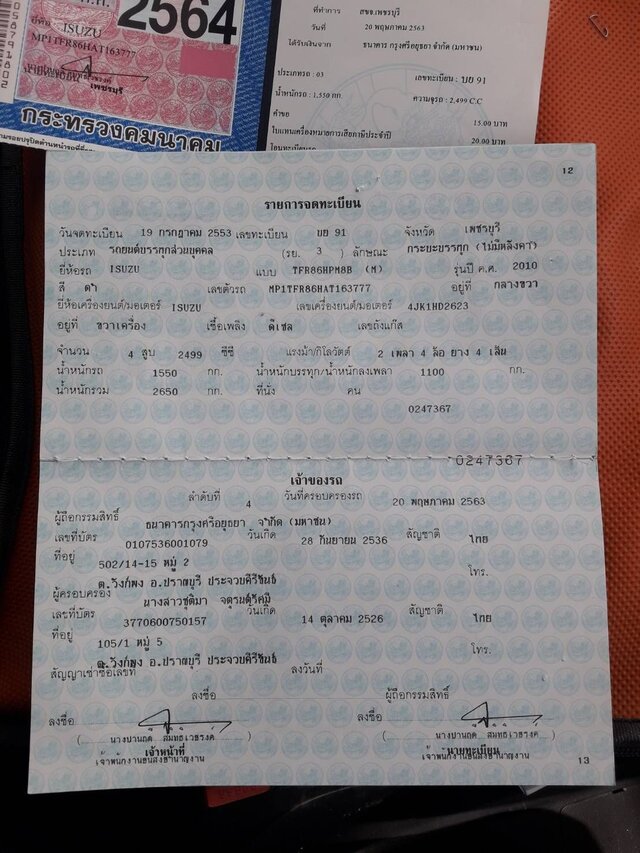 2564
ยี่ห้อ ISUZU
MP1TFR86HAT163777
เพชรบุรี
กระทรวงคมนาคม
ที่ทำการ สขจ.เพชรบุรี
วันที่ 20 พฤษภาคม 2563
ได้รับเงินจาก ธนาคาร กรุงศรีอยุธยา จำกัด (มหาชน)
ประเภทรถ : 03 เลขทะเบียน : บย 91
น้ำหนักรถ : 1,550 กก. ความจุรถ : 2,499 C.C
คำขอ 15.00 บาท
ใบแทนเครื่องหมายการเสียภาษีประจำปี 20.00 บาท
โอนทะเบียนรถ
12
รายการจดทะเบียน
วันจดทะเบียน 19 กรกฎาคม 2553 เลขทะเบียน บย 91 จังหวัด เพชรบุรี
ประเภท รถยนต์บรรทุกส่วนบุคคล (รย. 3 ) ลักษณะ กระบะบรรทุก (ไม่มีหลังคา)
ยี่ห้อรถ ISUZU แบบ TFR86HPM8B (M) รุ่นปี ค.ศ. 2010
สี ดำ เลขตัวรถ MP1TFR86HAT163777 อยู่ที่ กลางขวา
ยี่ห้อเครื่องยนต์/มอเตอร์ ISUZU เลขเครื่องยนต์/มอเตอร์ 4JK1HD2623
อยู่ที่ ขวาเครื่อง เชื้อเพลิง ดีเซล เลขถังแก๊ส
จำนวน 4 สูบ 2499 ซีซี แรงม้า/กิโลวัตต์ 2 เพลา 4 ล้อ ยาง 4 เส้น
น้ำหนักรถ 1550 กก. น้ำหนักบรรทุก/น้ำหนักลงเพลา 1100 กก.
น้ำหนักรวม 2650 กก. ที่นั่ง คน
0247367
0247367
เจ้าของรถ
ลำดับที่ 4 วันที่ครอบครองรถ 20 พฤษภาคม 2563
ผู้ถือกรรมสิทธิ์ ธนาคารกรุงศรีอยุธยา จำกัด (มหาชน)
เลขที่บัตร 0107536001079 วันเกิด 28 กันยายน 2536 สัญชาติ ไทย
ที่อยู่ 502/14-15 หมู่ 2 โทร.
ต.วังก์พง อ.ปราณบุรี ประจวบคีรีขันธ์
ผู้ครอบครอง นางสาวชุติมา จตุรนต์รัศมี
เลขที่บัตร 3770600750157 วันเกิด 14 ตุลาคม 2526 สัญชาติ ไทย
ที่อยู่ 105/1 หมู่ 5 โทร.
ต.วังก์พง อ.ปราณบุรี ประจวบคีรีขันธ์
สัญญาเช่าซื้อเลขที่ ลงวันที่
ลงชื่อ ผู้ถือกรรมสิทธิ์
ลงชื่อ ลงชื่อ
เจ้าหน้าที่ นายทะเบียน
เจ้าพนักงานขนส่งชำนาญงาน เจ้าพนักงานขนส่งชำนาญงาน
13